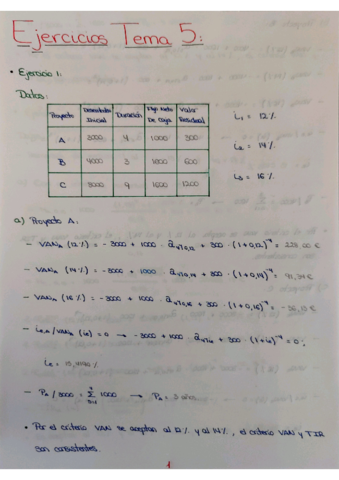 Ejercicios Tema 5:
• Ejercicio 1:
Datos:
Proyecto Desembolso Inicial Duración Flujo Neto De Caja Valor Residual
A 3000 4 1000 300
B 4000 3 1800 600
C 8000 9 1600 1200
i₁ = 12%
i₂ = 14%
i₃ = 16%
a) Proyecto A:
- VAN_A (12%) = - 3000 + 1000 · a_4┐0,12 + 300 · (1+0,12)⁻⁴ = 228,00 €
- VAN_A (14%) = - 3000 + 1000 · a_4┐0,14 + 300 · (1+0,14)⁻⁴ = 91,34 €
- VAN_A (16%) = - 3000 + 1000 · a_4┐0,16 + 300 · (1+0,16)⁻⁴ =
- / VAN_A (ie) = 0 → - 3000 + 1000 · a_4┐ie + 300 · (1+ie)⁻⁴ = 0 ;
ie =
- P_A / 3000 = Σ 1000 → P_A = 3 años
• Por el criterio VAN se aceptan al 12% y al 14%, el criterio VAN y TIR
son consistentes.
1